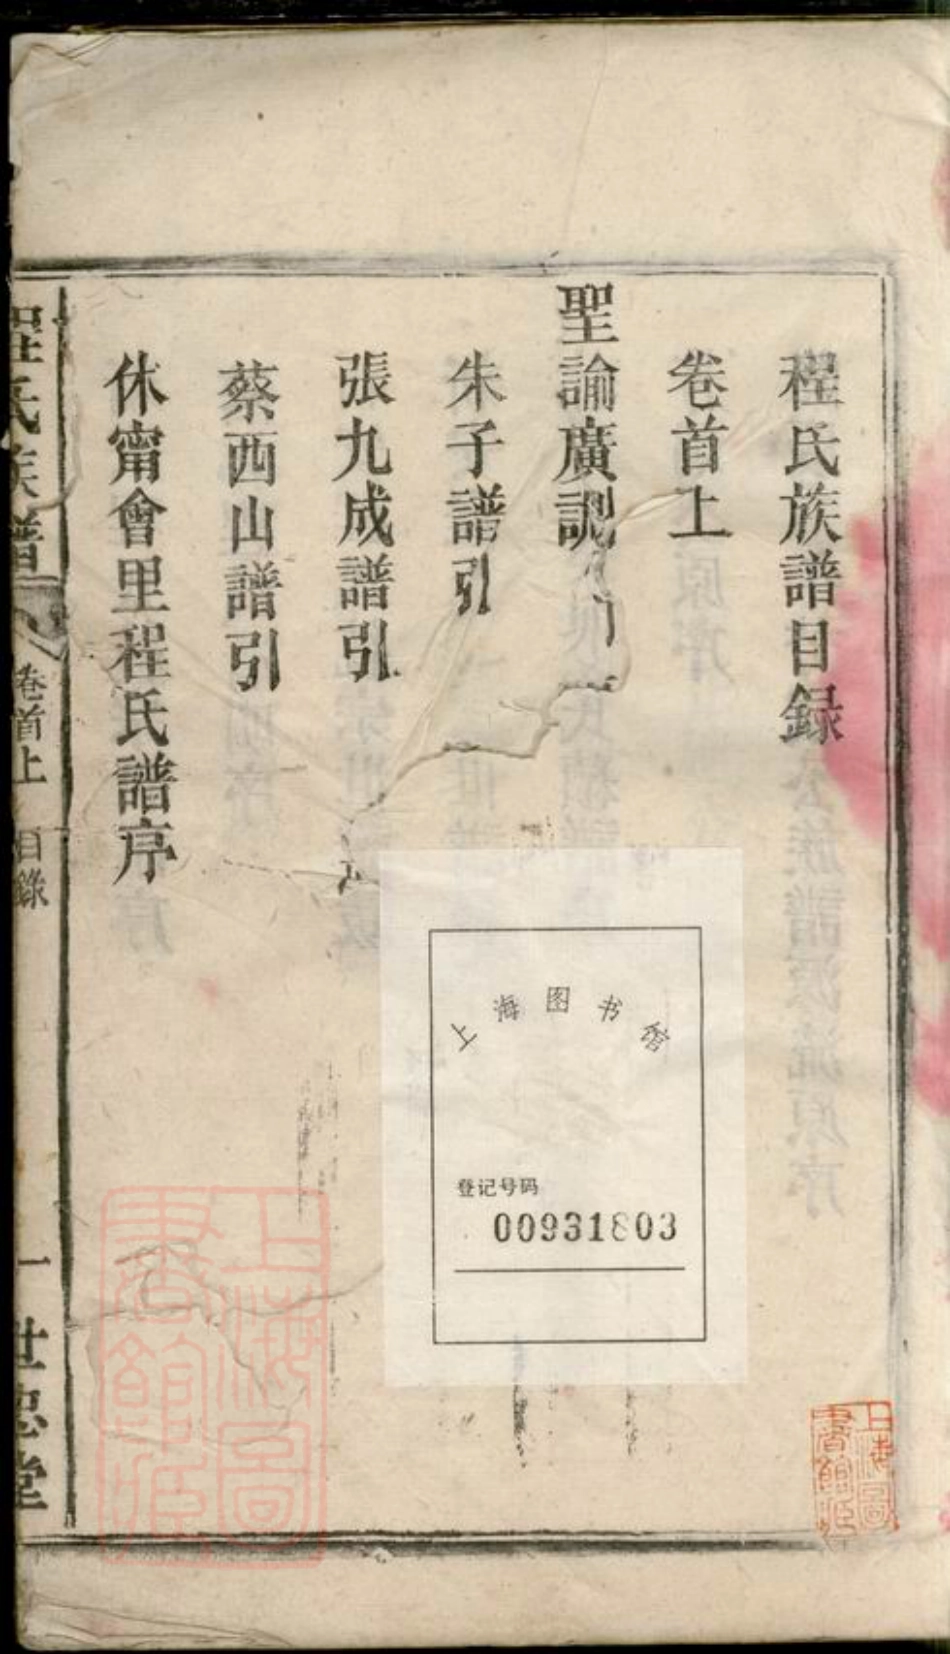 程氏族譜目録
卷首上
聖諭廣訓
朱子譜引
張九成譜引
蔡西山譜引
休甯會里程氏譜序
程氏族譜
卷首上 目錄
一 世忠堂
上海图书馆
登记号码
00931803
上海圖書館藏
上海圖書館藏